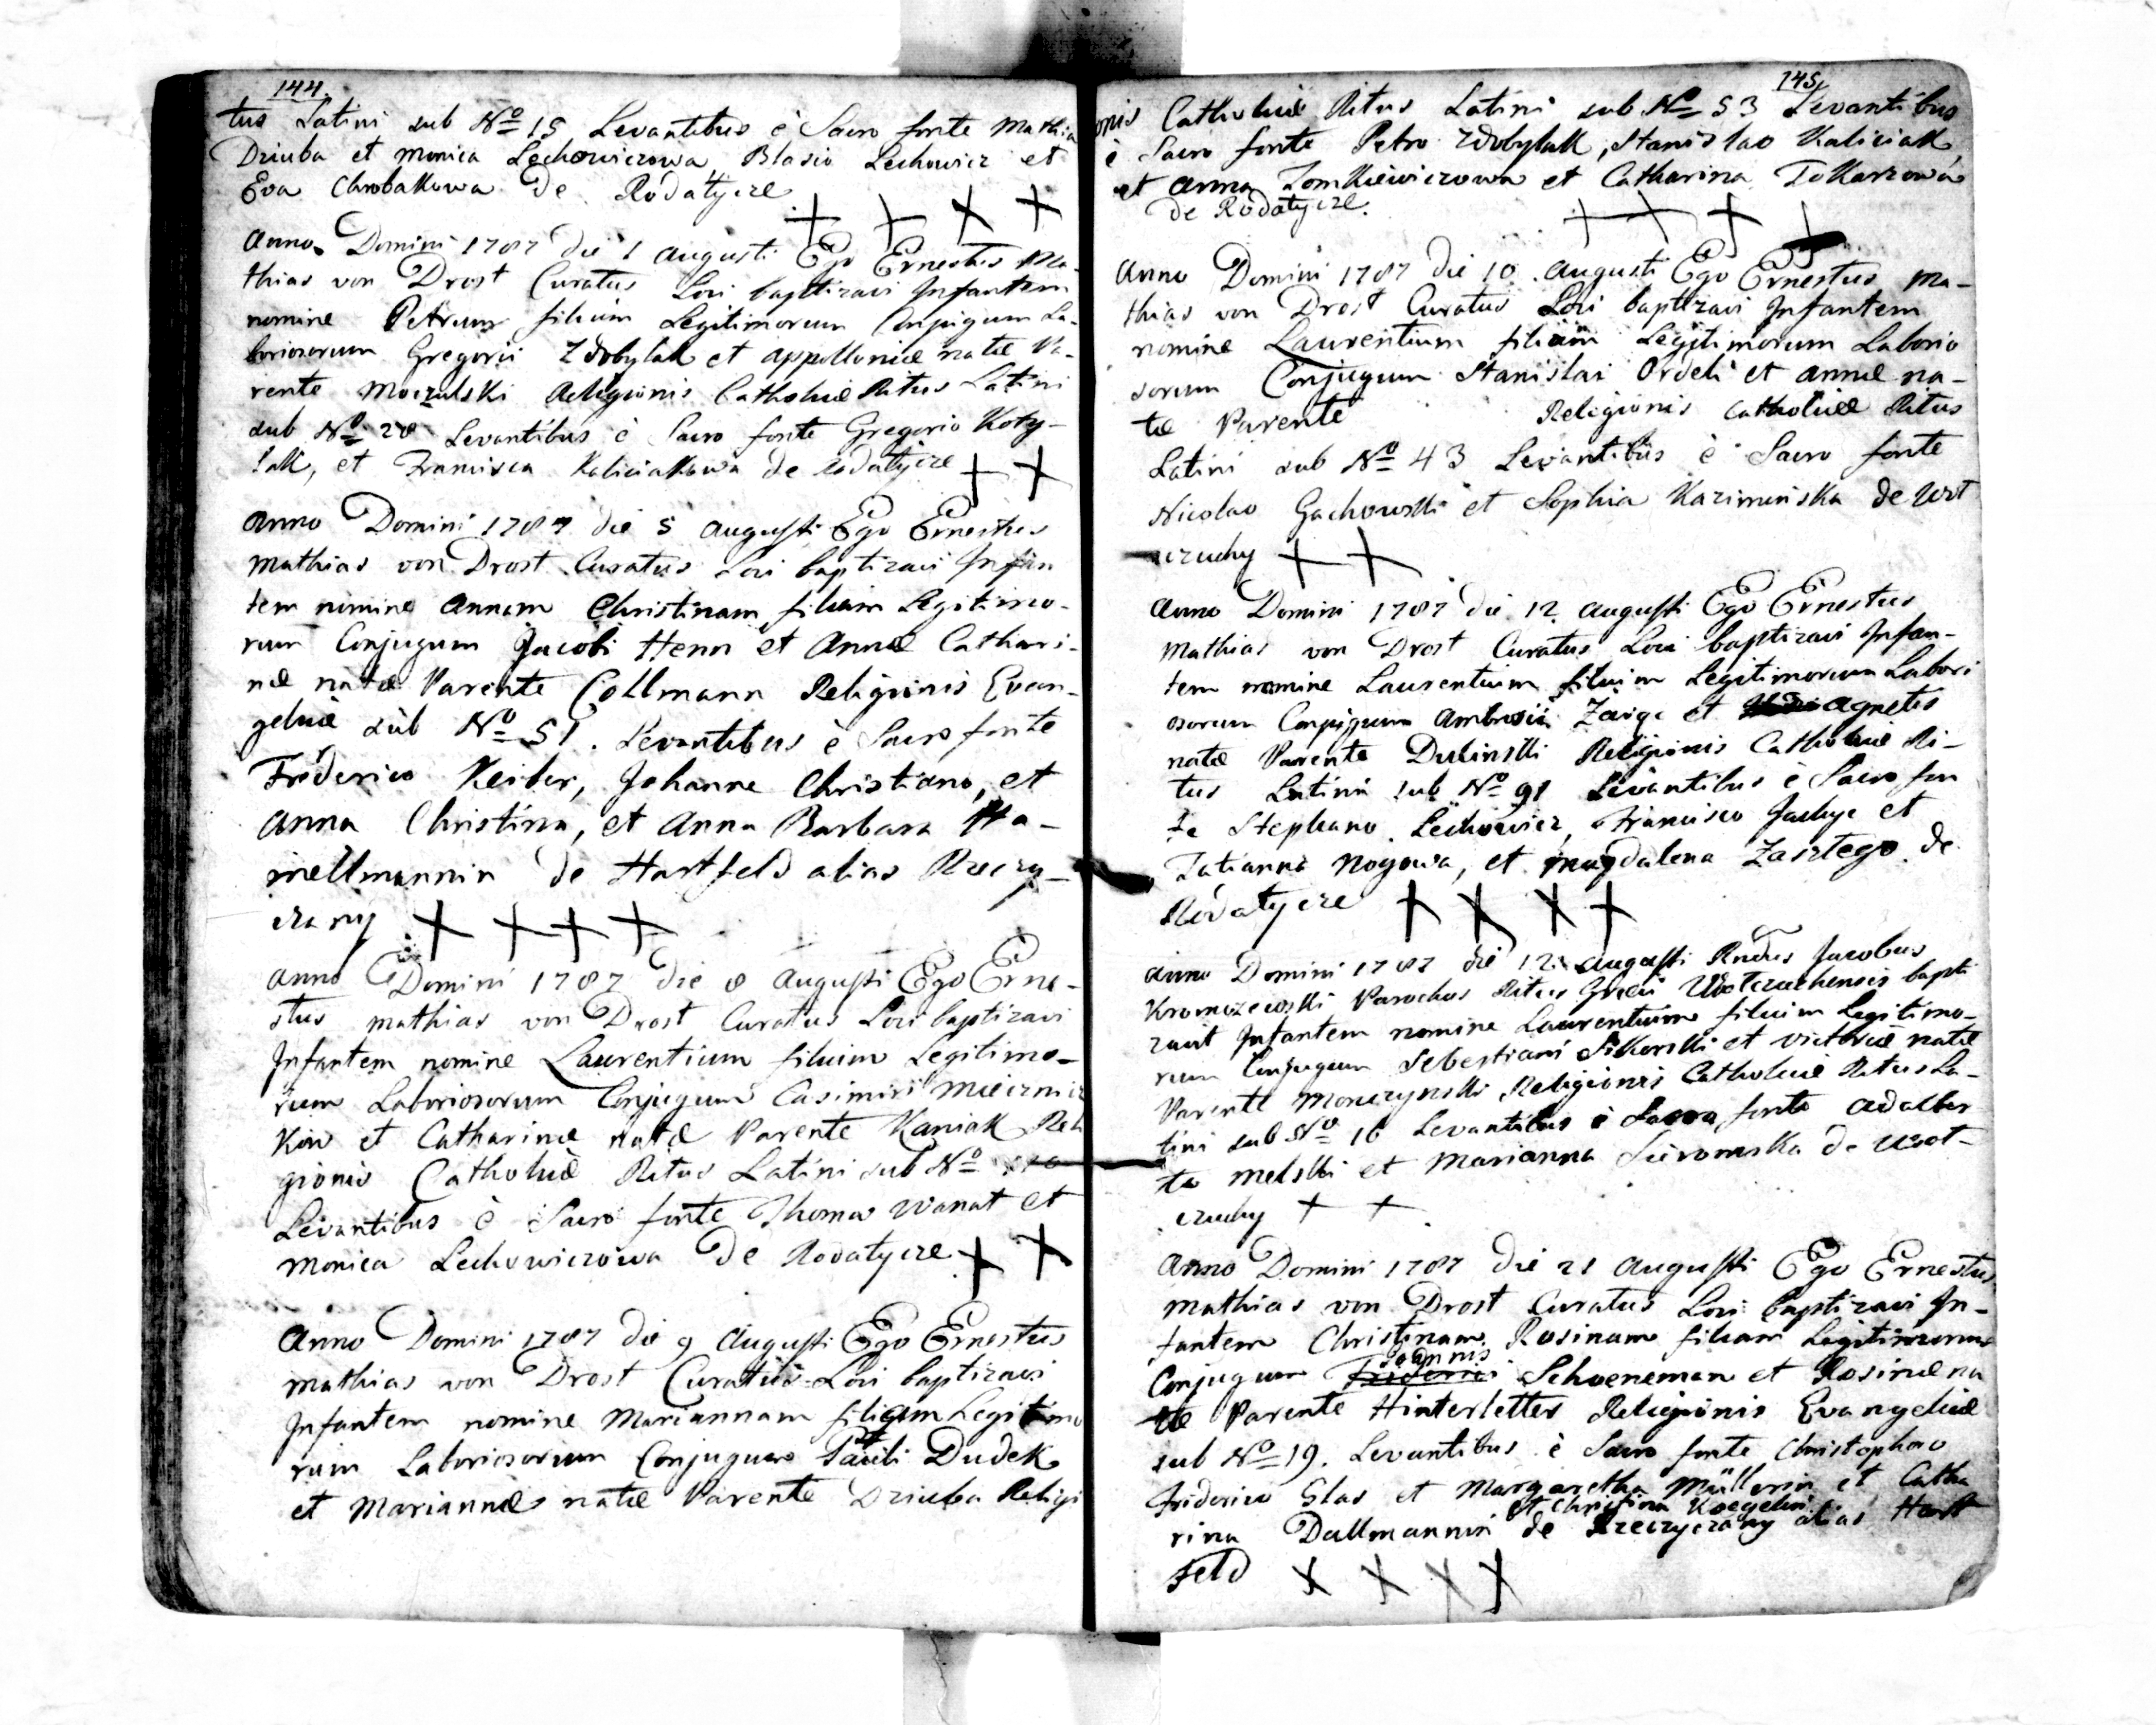 144.
tus Latini sub No 15 Levantibus è Sacro fonte Mathia
Dziuba et Monica Lechowiczowa, Blasio Lechowicz et
Eva Chrobakowa De Rodatycze
Anno Domini 1787 die 1 Augusti Ego Ernestus Ma-
thias von Drost Curatus Loci baptizavi Infantem
nomine Petrum filium Legitimorum Conjugum La-
boriosorum Gregorii Zdobylak et Appolloniæ natæ Pa-
rente Moczulski Religionis Catholicæ Ritus Latini
sub No 28 Levantibus è Sacro fonte Gregorio Koty-
lak, et Francisca Kaliciakowa de Rodatycze
Anno Domini 1787 die 5 Augusti Ego Ernestus
Mathias von Drost Curatus Loci baptizavi Infan
tem nomine Annam Christinam filiam Legitimo-
rum Conjugum Jacobi Henn et Annæ Cathari-
næ natæ Parente Collmann Religionis Evan-
gelicæ sub No 51. Levantibus è Sacro fonte
Frederico Keiber, Johanne Christiano, et
Anna Christina, et Anna Barbara Ha-
mellmannin de Hartfeld alias Rzeczy-
czany
Anno Domini 1787 die 8 Augusti Ego Erne-
stus Mathias von Drost Curatus Loci baptizavi
Infantem nomine Laurentium filium Legitimo-
rum Laboriosorum Conjugum Casimiri Mieczni
kow et Catharinæ natæ Parente Kaniak Reli
gionis Catholicæ Ritus Latini sub No
Levantibus è Sacro fonte Thoma Wanat et
Monica Lechowiczowa De Rodatycze
Anno Domini 1787 die 9 Augusti Ego Ernestus
Mathias von Drost Curatus Loci baptizavi
Infantem nomine Mariannam filiam Legitimo
rum Laboriosorum Conjugum Pauli Dudek
et Mariannæ natæ Parente Dziuba Religi
145
onis Catholicæ Ritus Latini sub No 53 Levantibus
è Sacro fonte Petro Zdobylak, Stanislao Kaliciak,
et Anna Tomkiewiczowa et Catharina Tokarzowa
de Rodatycze.
Anno Domini 1787 die 10 Augusti Ego Ernestus Ma-
thias von Drost Curatus Loci baptizavi Infantem
nomine Laurentium filium Legitimorum Laborio
sorum Conjugum Stanislai Ordeli et Annæ na-
tæ Parente Religionis Catholicæ Ritus
Latini sub No 43 Levantibus è Sacro fonte
Nicolao Gachowski et Sophia Kaziminska de Uwt
czuchy
Anno Domini 1787 die 12 Augusti Ego Ernestus
Mathias von Drost Curatus Loci baptizavi Infan-
tem nomine Laurentium filium Legitimorum Labori
osorum Conjugum Ambrosii et Agnetis
natæ Parente Dubinski Religionis Catholicæ Ri-
tus Latini sub No 91 Levantibus è Sacro fon
te Stephano Lechowicz, Francisco et
Tatianna Nogowa, et Magdalena de
Rodatycze
Anno Domini 1787 die 12 Augusti Rndus Jacobus
Parochus Ritus Græci bapti
zavit Infantem nomine Laurentium filium Legitimo-
rum Conjugum Sebestiani Sikorski et Victoriæ natæ
Parente Monczynski Religionis Catholicæ Ritus La-
tini sub No 16 Levantibus è Sacro fonte Adalber
to Melski et Marianna de Uwot-
czuchy
Anno Domini 1787 die 21 Augusti Ego Ernestus
Mathias von Drost Curatus Loci baptizavi In-
fantem Christinam Rosinam filiam Legitimorum
Joannis
Conjugum Friderici Schoeneman et Rosinæ na
tæ Parente Hinterletter Religionis Evangelicæ
sub No 19. Levantibus è Sacro fonte Christophoro
Friderico Glas et Margaretha Müllerin et Catha
et Christina Koegelin
rina Dallmannin de Rzeczyczany alias Hart
feld